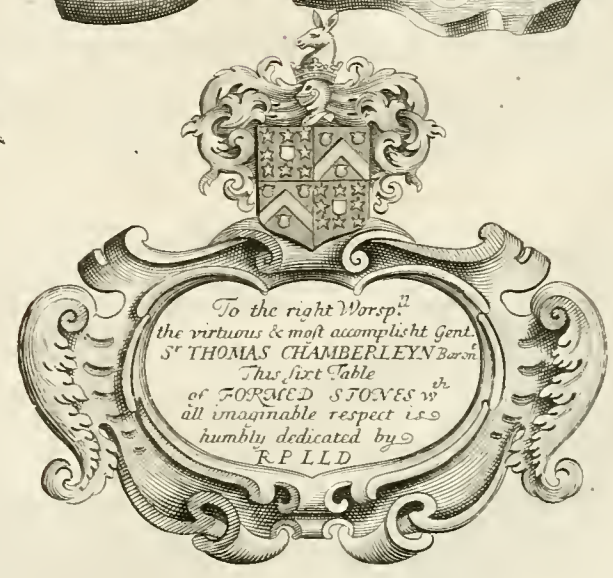 To the right Worsp.ll
the virtuous & moſt accompliſht Gent.
Sr THOMAS CHAMBERLEYN Baront
This ſixt Table
of FORMED STONES wth
all imaginable respect is
humbly dedicated by
R P L L D